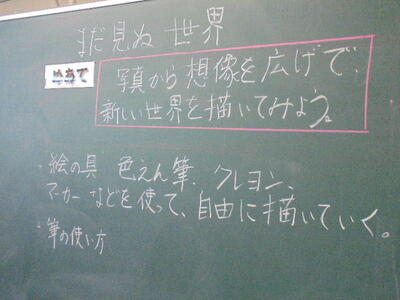 まだ見ぬ世界
めあて
写真から想像を広げて、
新しい世界を描いてみよう。
・絵の具 色えん筆、クレヨン、
マーカーなどを使って、自由に描いていく。
・筆の使い方